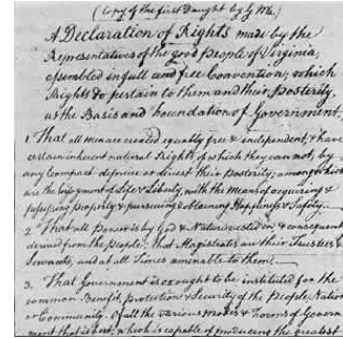 (Copy of the first Daught by G M.)
A Declaration of Rights made by the
Representatives of the good People of Virginia,
assembled in full and free Convention; which
Rights do pertain to them and their Posterity,
as the Basis and Foundation of Government.
1. That all men are created equally free & independent, & have
certain inherent natural Rights, of which they cannot, by
any Compact deprive or divest their Posterity; among which
are the Enjoyment of Life & Liberty, with the Means of acquiring &
possessing Property, & pursueing & obtaining Happiness & Safety.
2 That all Power is by God & Nature vested in, & consequently
derived from the People; that Magistrates are their Trustees &
Servants, and at all Times amenable to them.
3. That Government is, or ought to be, instituted for the
common Benefit, protection & Security of the People, Nation
or Community. Of all the various Modes & Forms of Govern
ment that is best, which is capable of producing the greatest